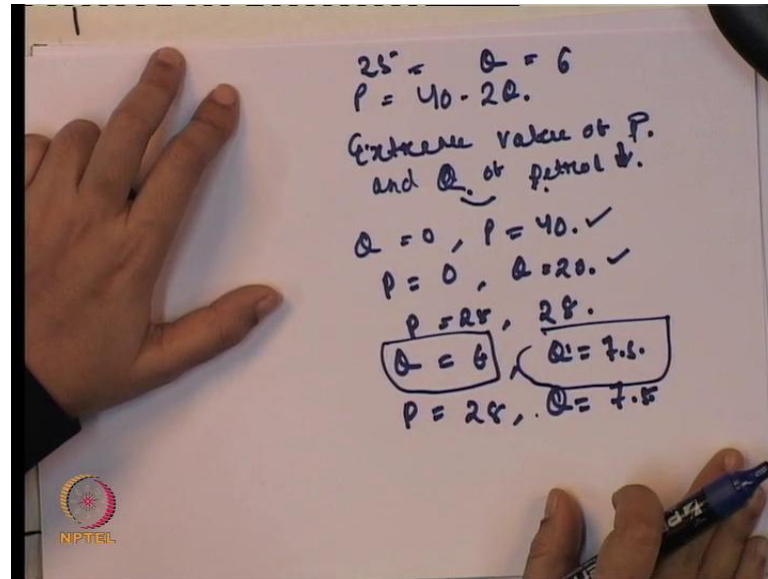 25 = Q = 6
P = 40 - 2Q.
Extreme value of P.
and Q. of petrol ↓.
Q = 0, P = 40. ✓
P = 0, Q = 20. ✓
P = 25, 28.
Q = 6, Q' = 7.5.
P = 28, Q = 7.5
NPTEL